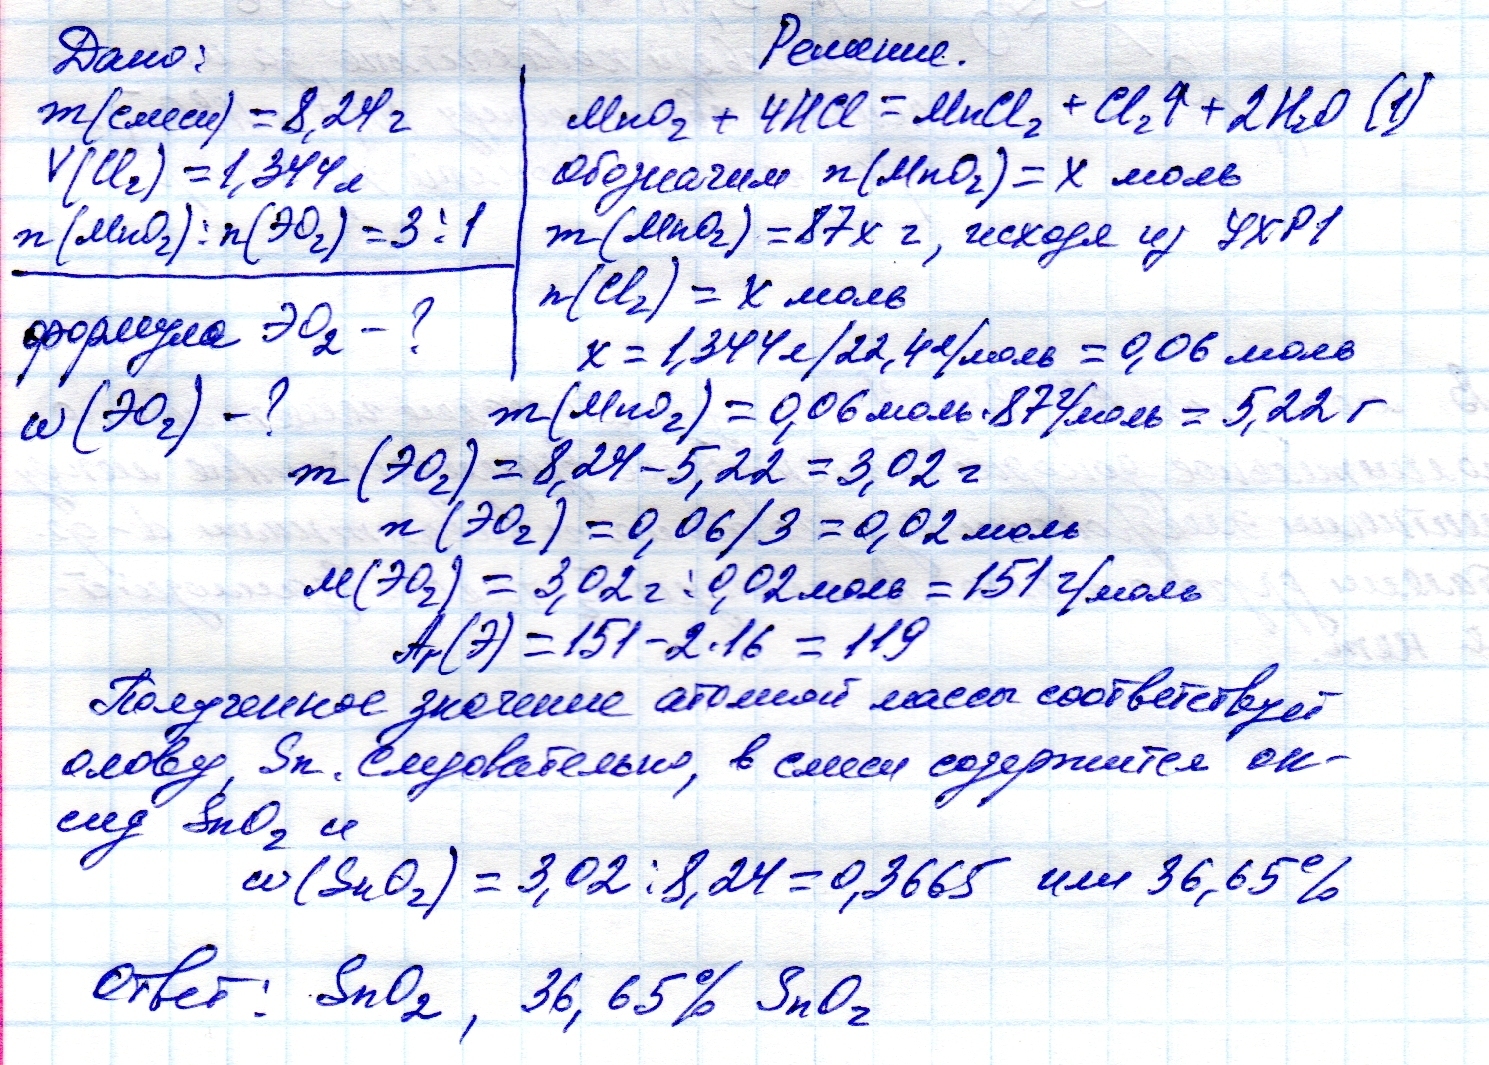 Дано:
m(смеси) = 8,24 г
V(Cl₂) = 1,344 л
n(MnO₂) : n(ЭO₂) = 3 : 1
формула ЭO₂ – ?
w(ЭO₂) – ?
Решение.
MnO₂ + 4HCl = MnCl₂ + Cl₂↑ + 2H₂O (1)
обозначим n(MnO₂) = x моль
m(MnO₂) = 87x г, исходя из УХР1
n(Cl₂) = x моль
x = 1,344 л/22,4 л/моль = 0,06 моль
m(MnO₂) = 0,06 моль·87 г/моль = 5,22 г
m(ЭO₂) = 8,24 – 5,22 = 3,02 г
n(ЭO₂) = 0,06/3 = 0,02 моль
M(ЭO₂) = 3,02 г : 0,02 моль = 151 г/моль
Ar(Э) = 151 – 2·16 = 119
Полученное значение атомной массы соответствует
олову, Sn. Следовательно, в смеси содержится ок-
сид SnO₂ и
w(SnO₂) = 3,02 : 8,24 = 0,3665 или 36,65%
Ответ: SnO₂, 36,65% SnO₂